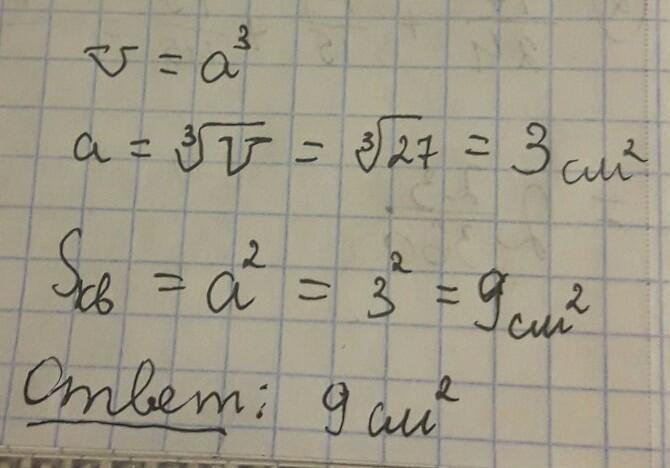 v = a³
a = ∛V = ∛27 = 3 см²
Sкв = a² = 3² = 9 см²
Ответ: 9 см²